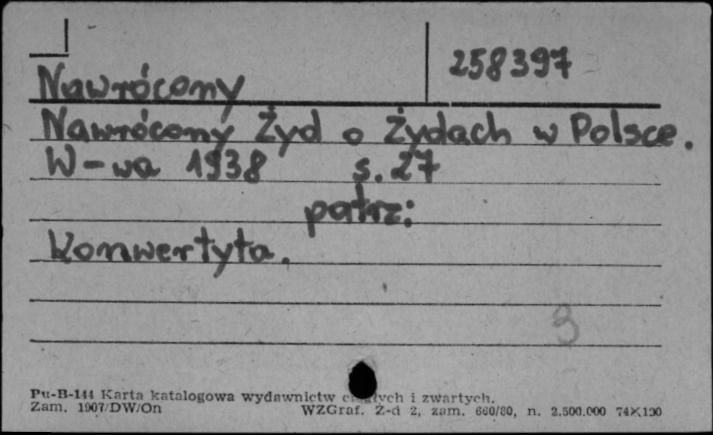 258397
Nawrócony
Nawrócony Żyd o Żydach w Polsce.
W-wa 1938 s. 27
patrz:
Konwertyta.
3
Pu-B-144 Karta katalogowa wydawnictw ciągłych i zwartych.
Zam. 1907/DW/On WZGraf. Z-d 2, zam. 660/80, n. 2.500.000 74×120